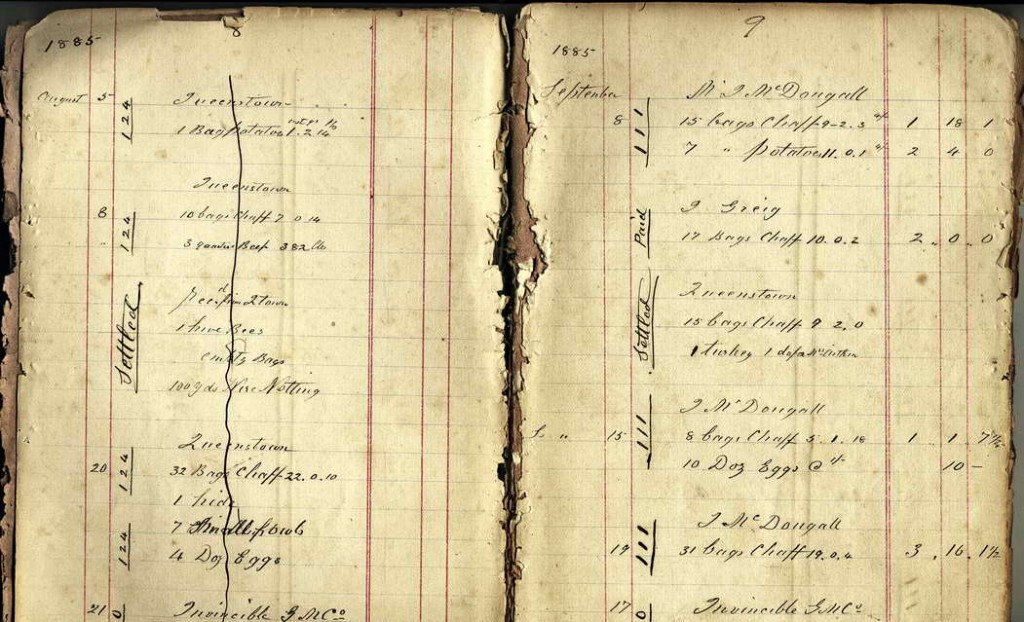 8
1885
August 5 124 Queenstown
1 Bag Potatoes 1. 2. 14
Queenstown
8 124 10 bags Chaff 7 0 14
3 quarters Beef 382 lbs
Settled Recd from Qtown
1 hive Bees
Empty Bags
100 yds Wire Netting
Queenstown
20 124 32 Bags Chaff 22.0.10
1 hide
124 7 Small fowls
4 Doz Eggs
21 Invincible G M Co
9
1885
September M J McDougall
8 111 15 bags Chaff 9-2.3 1 18 1
7 " Potatoes 11.0.1 2 4 0
Paid J Greig
17 Bags Chaff 10.0.2 2 . 0 . 0
Settled Queenstown
15 bags Chaff 9 2.0
1 turkey 1
J McDougall
S " 15 111 8 bags Chaff 5.1.18 1 . 1 . 7½
10 Doz Eggs @ 1/- 10 –
J McDougall
19 111 31 bags Chaff 19.0.4 3 . 16 . 1½
17 Invincible G M Co